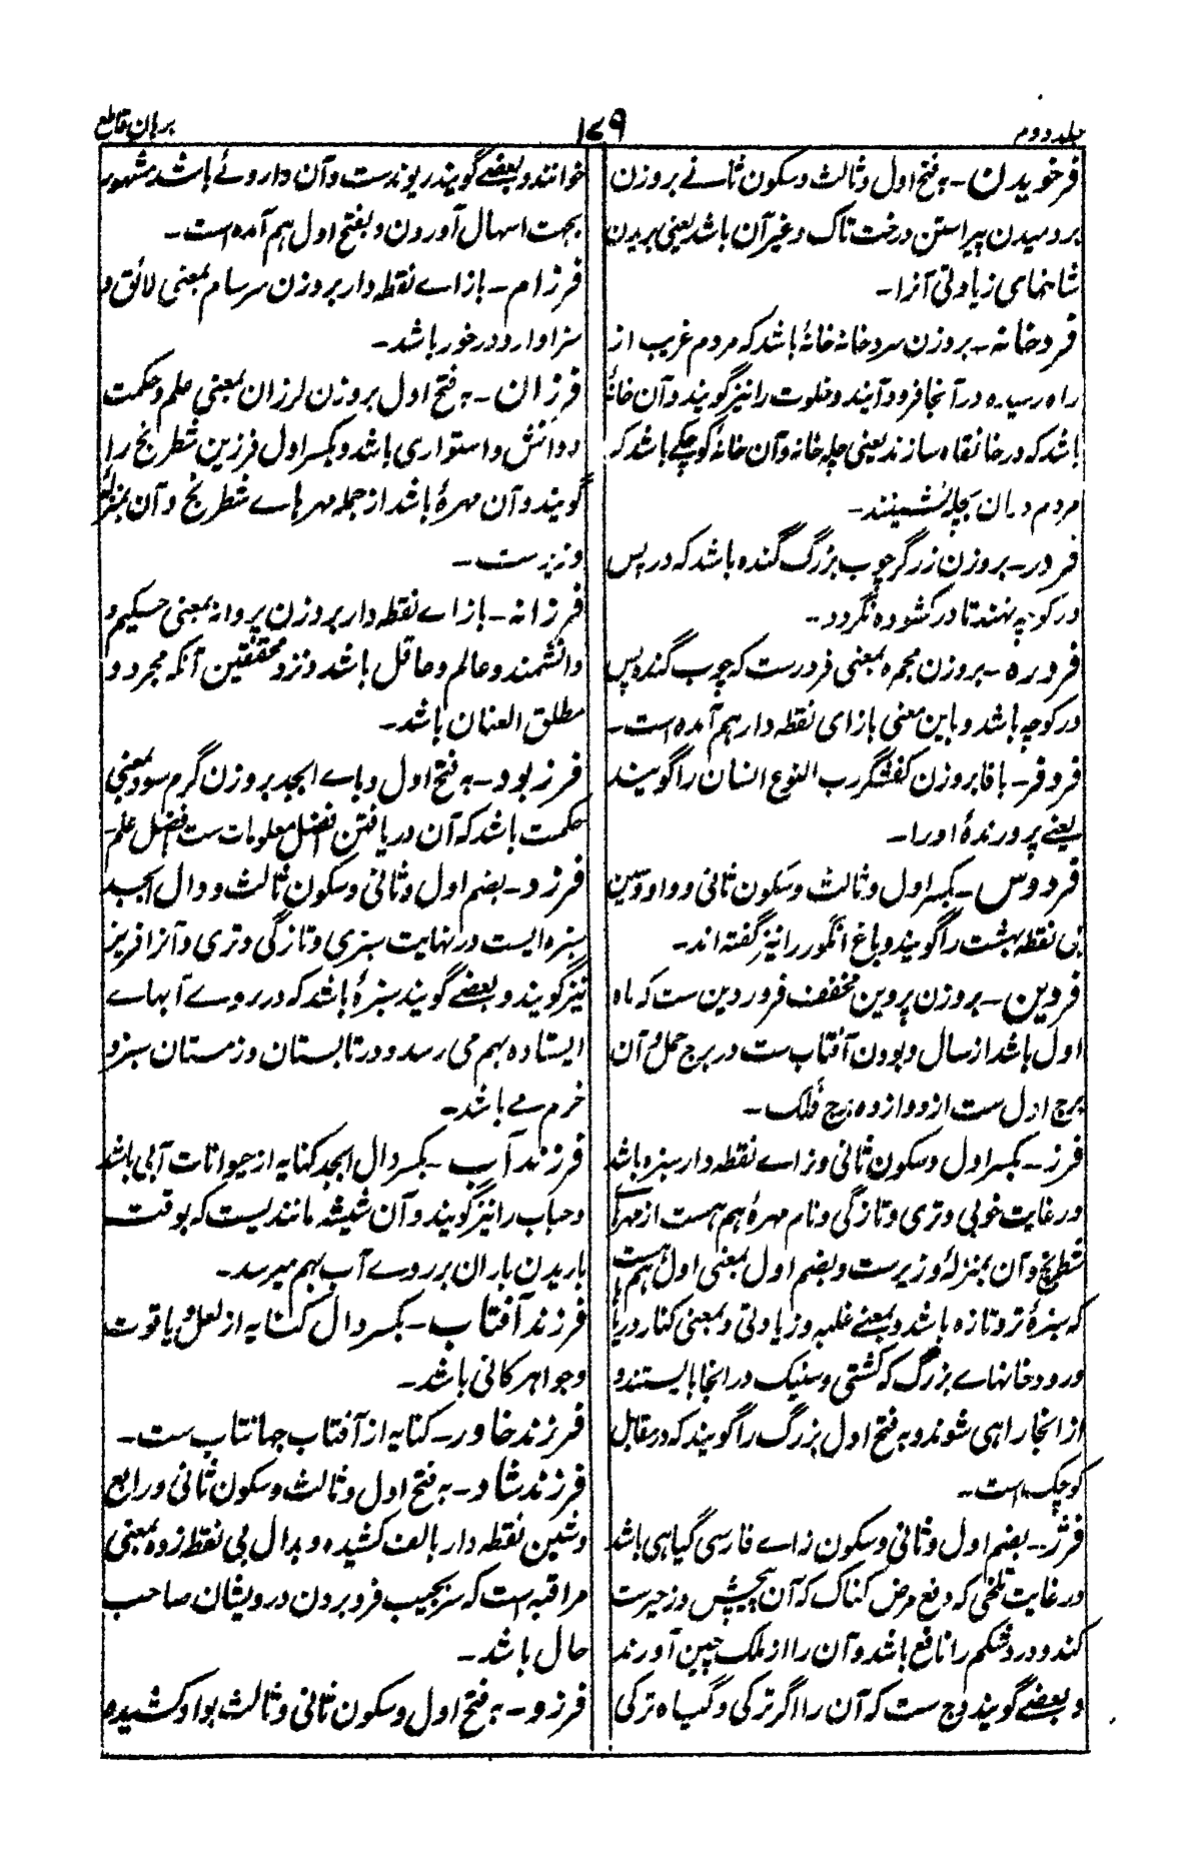 جلد دوم
۱۷۹
برہان قاطع
فرخویدن۔ بہ فتح اول و ثالث و سکون ثانے بروزن
بردمیدن پیراستن درخت تاک و غیر آن باشد یعنی بریدن
شاخهای زیادتی آنرا۔
فردخانہ۔ بروزن سردخانہ خانۂ باشد کہ مردم غریب از
راه رسیده در آنجا فرود آیند و خلوت را نیز گویند و آن خانۂ
باشد کہ در خانقاه سازند یعنی چلہ خانہ و آن خانۂ کوچکے باشد کہ
مردم دران بچلہ نشینند۔
فردر۔ بروزن زرگر چوب بزرگ گنده باشد کہ در پس
در کوچہ نهند تا در کشوده نگردد۔
فردره۔ بروزن مجمره بمعنی فردرست کہ چوب گنده پس
در کوچہ باشد و باین معنی بازای نقطہ دار هم آمده است۔
فردفر۔ بافا بروزن کفشگر رب النوع انسان را گویند
یعنے پرورندۂ اورا۔
فردوس۔ بکسر اول و ثالث و سکون ثانی و واو و سین
بی نقطہ بهشت را گویند و باغ انگور را نیز گفتہ اند۔
فردین۔ بروزن پروین مخفف فروردین ست کہ ماه
اول باشد از سال و بودن آفتاب ست در برج حمل و آن
برج اول ست از دوازده برج فلک۔
فرز۔ بکسر اول و سکون ثانی و زاے نقطہ دار سبزه باشد
در غایت خوبی و تری و تازگی و نام مهرۂ هم هست از مهرهای
شطرنج و آن بمنزلۂ وزیرست و بضم اول بمعنی اول هم هست
کہ سبزۂ تر و تازه باشد و بمعنے غلبہ و زیادتی و بمعنی کنار دریا
و رودخانهاے بزرگ کہ کشتی و سنبک در انجا بایستند و
از انجا راهی شوند و بہ فتح اول بزرگ را گویند کہ در مقابل
کوچک است۔
فرژ۔ بضم اول و ثانی و سکون زاے فارسی گیاهی باشد
در غایت تلخی کہ دفع مرض کناک کہ آن پیچش و زحیرست
کند و درد شکم را نافع باشد و آن را از ملک چین آورند
و بعضے گویند وج ست کہ آن را اگر ترکی و گیاه ترکی
خوانند و بعضے گویند ریوندست و آن داروئے باشد مشهور
بجهت اسهال آوردن و بفتح اول هم آمده است۔
فرزام۔ بازاے نقطہ دار بروزن سرسام بمعنی لائق و
سزاوار و درخور باشد۔
فرزان۔ بہ فتح اول بروزن لرزان بمعنی علم و حکمت
و دانش و استواری باشد و بکسر اول فرزین شطرنج را
گویند و آن مهرۂ باشد از جملہ مهرهاے شطرنج و آن بمنزلۂ
وزیرست۔
فرزانہ۔ بازاے نقطہ دار بروزن پروانہ بمعنی حکیم و
دانشمند و عالم و عاقل باشد و نزد محققین آنکہ مجرد و
مطلق العنان باشد۔
فرزبود۔ بہ فتح اول و باے ابجد بروزن گرم سود بمعنی
حکمت باشد کہ آن دریافتن افضل معلومات ست بافضل علم۔
فرزد۔ بضم اول و ثانی و سکون ثالث و دال ابجد
سبزه ایست در نهایت سبزی و تازگی و تری و آنرا فریز
نیز گویند و بعضے گویند سبزۂ باشد کہ در روے آبهاے
ایستاده بهم می رسد و در تابستان و زمستان سبز و
خرم مے باشد۔
فرزند آب۔ بکسر دال ابجد کنایہ از حیوانات آبی باشد
و حباب را نیز گویند و آن شیشہ مانندیست کہ بوقت
باریدن باران بر روے آب بهم میرسد۔
فرزند آفتاب۔ بکسر دال کنایہ از لعل و یاقوت
و جواهر کانی باشد۔
فرزند خاور۔ کنایہ از آفتاب جهانتاب ست۔
فرزند شاد۔ بہ فتح اول و ثالث و سکون ثانی و رابع
و شین نقطہ دار بالف کشیده و بدال بی نقطہ زده بمعنی
مراقبہ است کہ سر بجیب فرو بردن درویشان صاحب
حال باشد۔
فرزو۔ بہ فتح اول و سکون ثانی و ثالث بواو کشیده